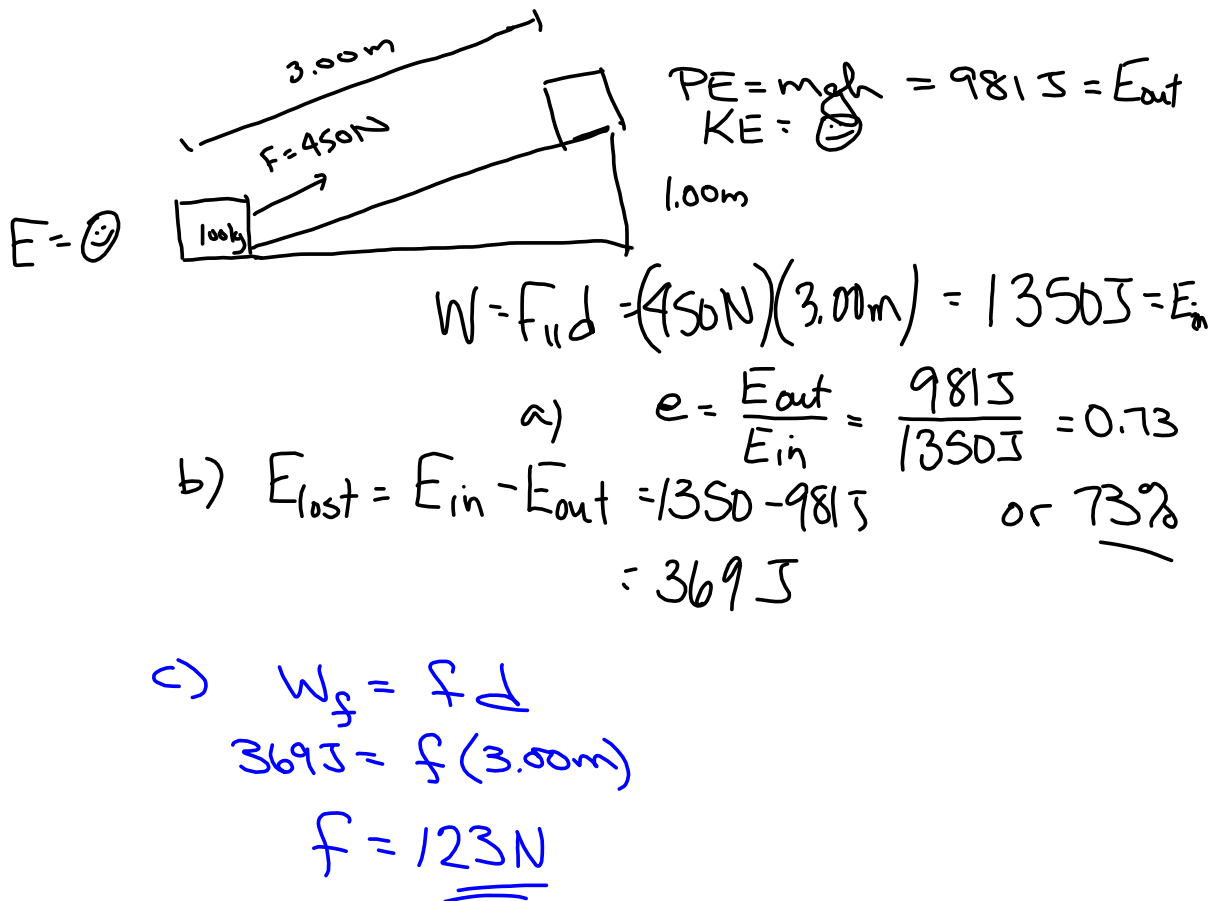 3.00m
F=450N
100kg
E=☺
1.00m
PE=mgh = 981J = Eout
KE = ☺
W=F∥d =(450N)(3.00m) = 1350J = Ein
a) e = Eout/Ein = 981J/1350J = 0.73
or 73%
b) Elost = Ein - Eout = 1350 - 981J
= 369J
c) Wf = fd
369J = f(3.00m)
f = 123N